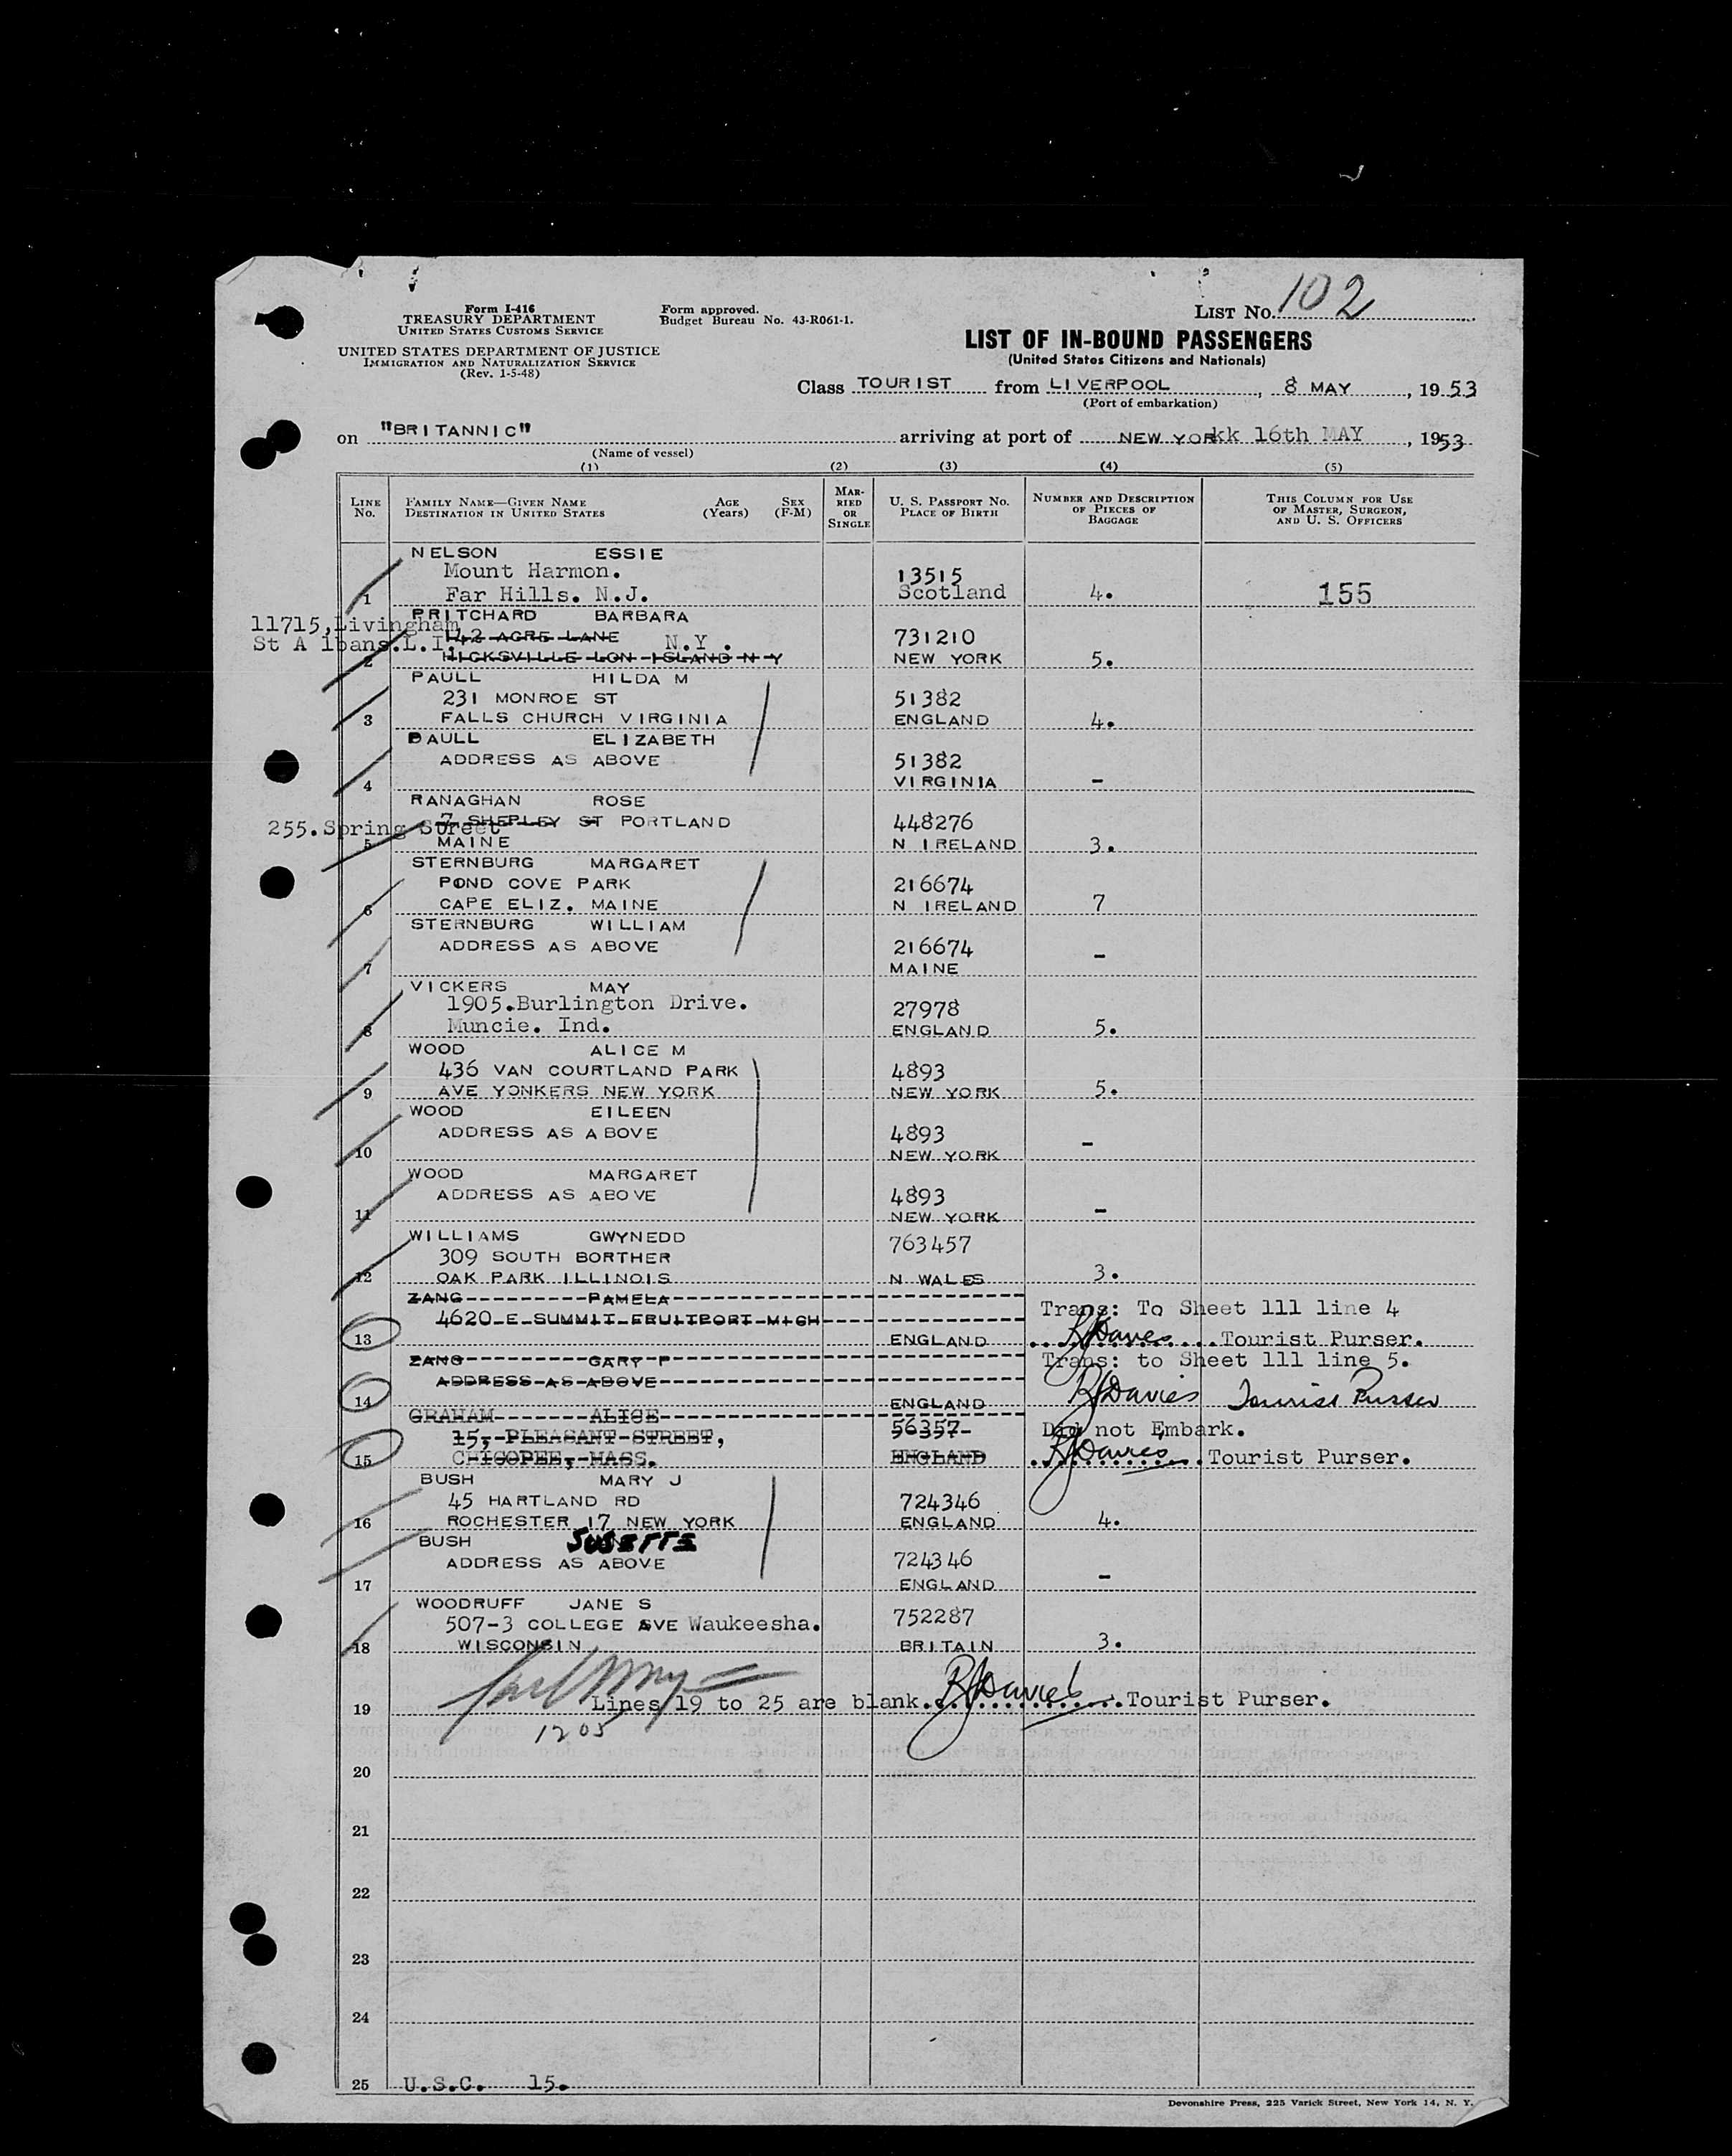 Form I-416
TREASURY DEPARTMENT
UNITED STATES CUSTOMS SERVICE
UNITED STATES DEPARTMENT OF JUSTICE
IMMIGRATION AND NATURALIZATION SERVICE
(Rev. 1-5-48)
Form approved.
Budget Bureau No. 43-R061-1.
LIST NO. 102
LIST OF IN-BOUND PASSENGERS
(United States Citizens and Nationals)
Class TOURIST from LIVERPOOL, 8 MAY, 1953
(Port of embarkation)
on "BRITANNIC" arriving at port of NEW YORkk 16th MAY, 1953
(Name of vessel)
(1) (2) (3) (4) (5)
LINE NO.
FAMILY NAME—GIVEN NAME
DESTINATION IN UNITED STATES
AGE (Years)
SEX (F-M)
MARRIED OR SINGLE
U. S. PASSPORT NO.
PLACE OF BIRTH
NUMBER AND DESCRIPTION OF PIECES OF BAGGAGE
THIS COLUMN FOR USE OF MASTER, SURGEON, AND U. S. OFFICERS
NELSON ESSIE
Mount Harmon. 13515
1 Far Hills. N.J. Scotland 4. 155
PRITCHARD BARBARA
11715,Livingham
142 ACRE LANE 731210
St Albans.L.I. N.Y.
2 HICKSVILLE LON ISLAND N Y NEW YORK 5.
PAULL HILDA M
231 MONROE ST 51382
3 FALLS CHURCH VIRGINIA ENGLAND 4.
PAULL ELIZABETH
ADDRESS AS ABOVE 51382
4 VIRGINIA -
RANAGHAN ROSE
255.Spring Street
7 SHEPLEY ST PORTLAND 448276
5 MAINE N IRELAND 3.
STERNBURG MARGARET
POND COVE PARK 216674
6 CAPE ELIZ. MAINE N IRELAND 7
STERNBURG WILLIAM
ADDRESS AS ABOVE 216674
7 MAINE -
VICKERS MAY
1905.Burlington Drive. 27978
8 Muncie. Ind. ENGLAND 5.
WOOD ALICE M
436 VAN COURTLAND PARK 4893
9 AVE YONKERS NEW YORK NEW YORK 5.
WOOD EILEEN
ADDRESS AS ABOVE 4893
10 NEW YORK -
WOOD MARGARET
ADDRESS AS ABOVE 4893
11 NEW YORK -
WILLIAMS GWYNEDD 763457
309 SOUTH BORTHER
12 OAK PARK ILLINOIS N WALES 3.
ZANG PAMELA
4620 E SUMMIT FRUITPORT MICH
Trans: To Sheet 111 line 4
13 ENGLAND RJDavies Tourist Purser.
ZANG GARY P
Trans: to Sheet 111 line 5.
ADDRESS AS ABOVE
14 ENGLAND RJDavies Tourist Purser
GRAHAM ALICE
15, PLEASANT STREET, 56357 Did not Embark.
15 CHICOPEE, MASS. ENGLAND RJDavies Tourist Purser.
BUSH MARY J
45 HARTLAND RD 724346
16 ROCHESTER 17 NEW YORK ENGLAND 4.
BUSH SUSETTE
ADDRESS AS ABOVE 724346
17 ENGLAND -
WOODRUFF JANE S
507-3 COLLEGE AVE Waukeesha. 752287
18 WISCONSIN BRITAIN 3.
19 Lines 19 to 25 are blank. RJDavies Tourist Purser.
1205
20
21
22
23
24
25 U.S.C. 15.
Devonshire Press, 225 Varick Street, New York 14, N. Y.